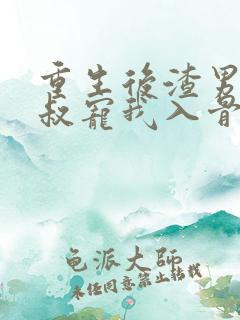 重生後渣男
叔寵我入骨
龟派大师
未经同意禁止转载